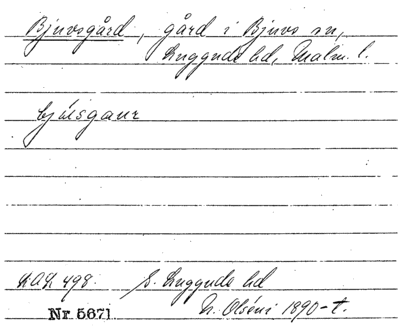 Bjuvsgård, gård i Bjuvs sn,
Luggude hd, Malm. l.
bjúsgaur
LAL 498. S. Luggude hd
N. Olséni 1890-t.
Nr 5671